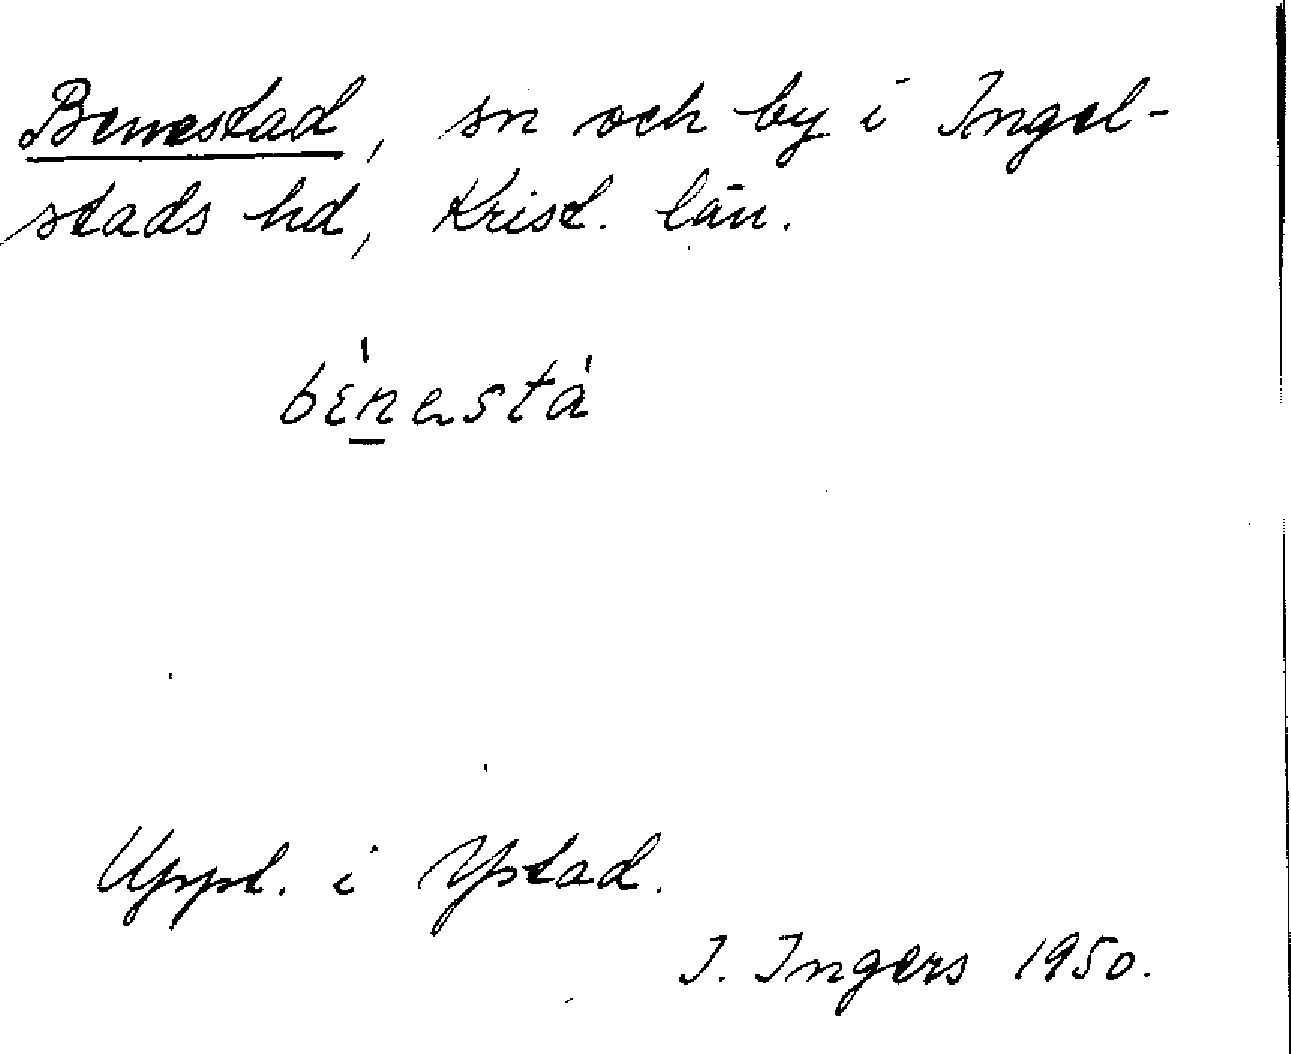 Benestad, sn och by i Ingel-
stads hd, Krist. län.
bɛ́nastá
Uppt. i Ystad.
I. Ingers 1950.